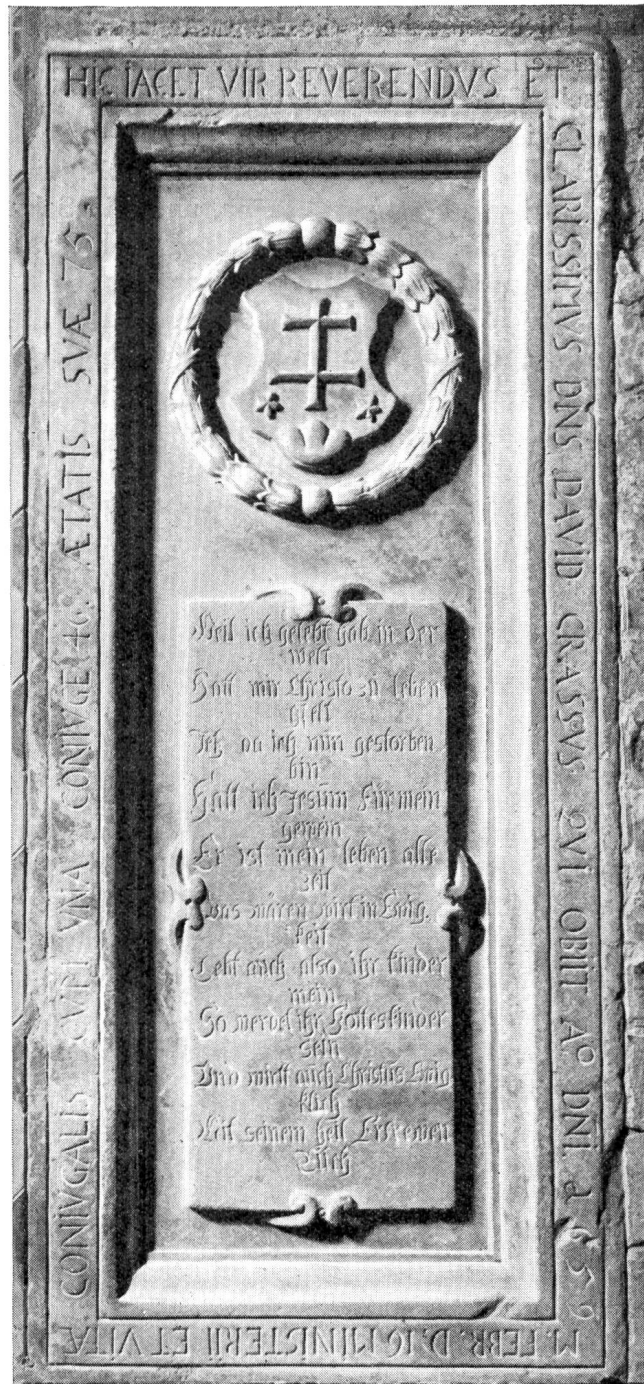 HIC IACET VIR REVERENDVS ET
CLARISSIMVS DNS DAVID CRASSVS QVI OBIIT A° DNI. 1659
M. FEBR. D. 16 MINISTERII ET VITÆ
CONIVGALIS CVM VNA CONIVGE 46. ÆTATIS SVÆ 75.
Weil ich gelebt hab in der
welt
Hatt mir Christo zu leben
gfelt
Jetz da ich nun gestorben
bin
Hatt ich Jesum für mein
gewein
Er ist mein leben alle
zeit
Das wären wirt in Ewig.
keit
Lebt auch also ihr kinder
mein
So werdet ihr Gotteskinder
sein
Und wirtt auch Christus Ewig
klich
Mit seinem heil Erfrewen
Eüch